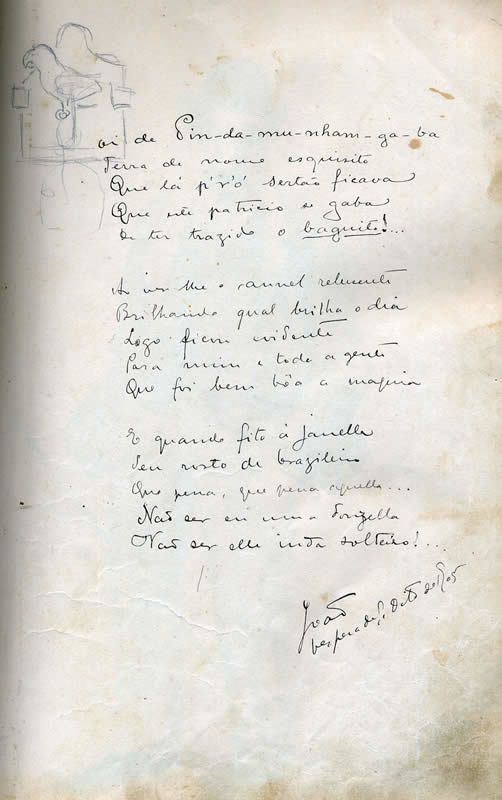 oi de Pin-da-mu-nham-ga-ba
Terra de nome esquisito
Que lá p'r'ó sertão ficava
Que este patricio se gaba
De ter trazido o baguito!...
Ao ver-lhe o annel relusente
Brilhando qual brilha o dia
Logo ficou evidente
Para mim e toda a gente
Que foi bem bôa a maquia
E quando fito á janella
Seu rosto de brazileiro
Que pena, que pena aquella...
Não ser eu uma donzella
Não ser elle inda solteiro!...
João
vespera de de